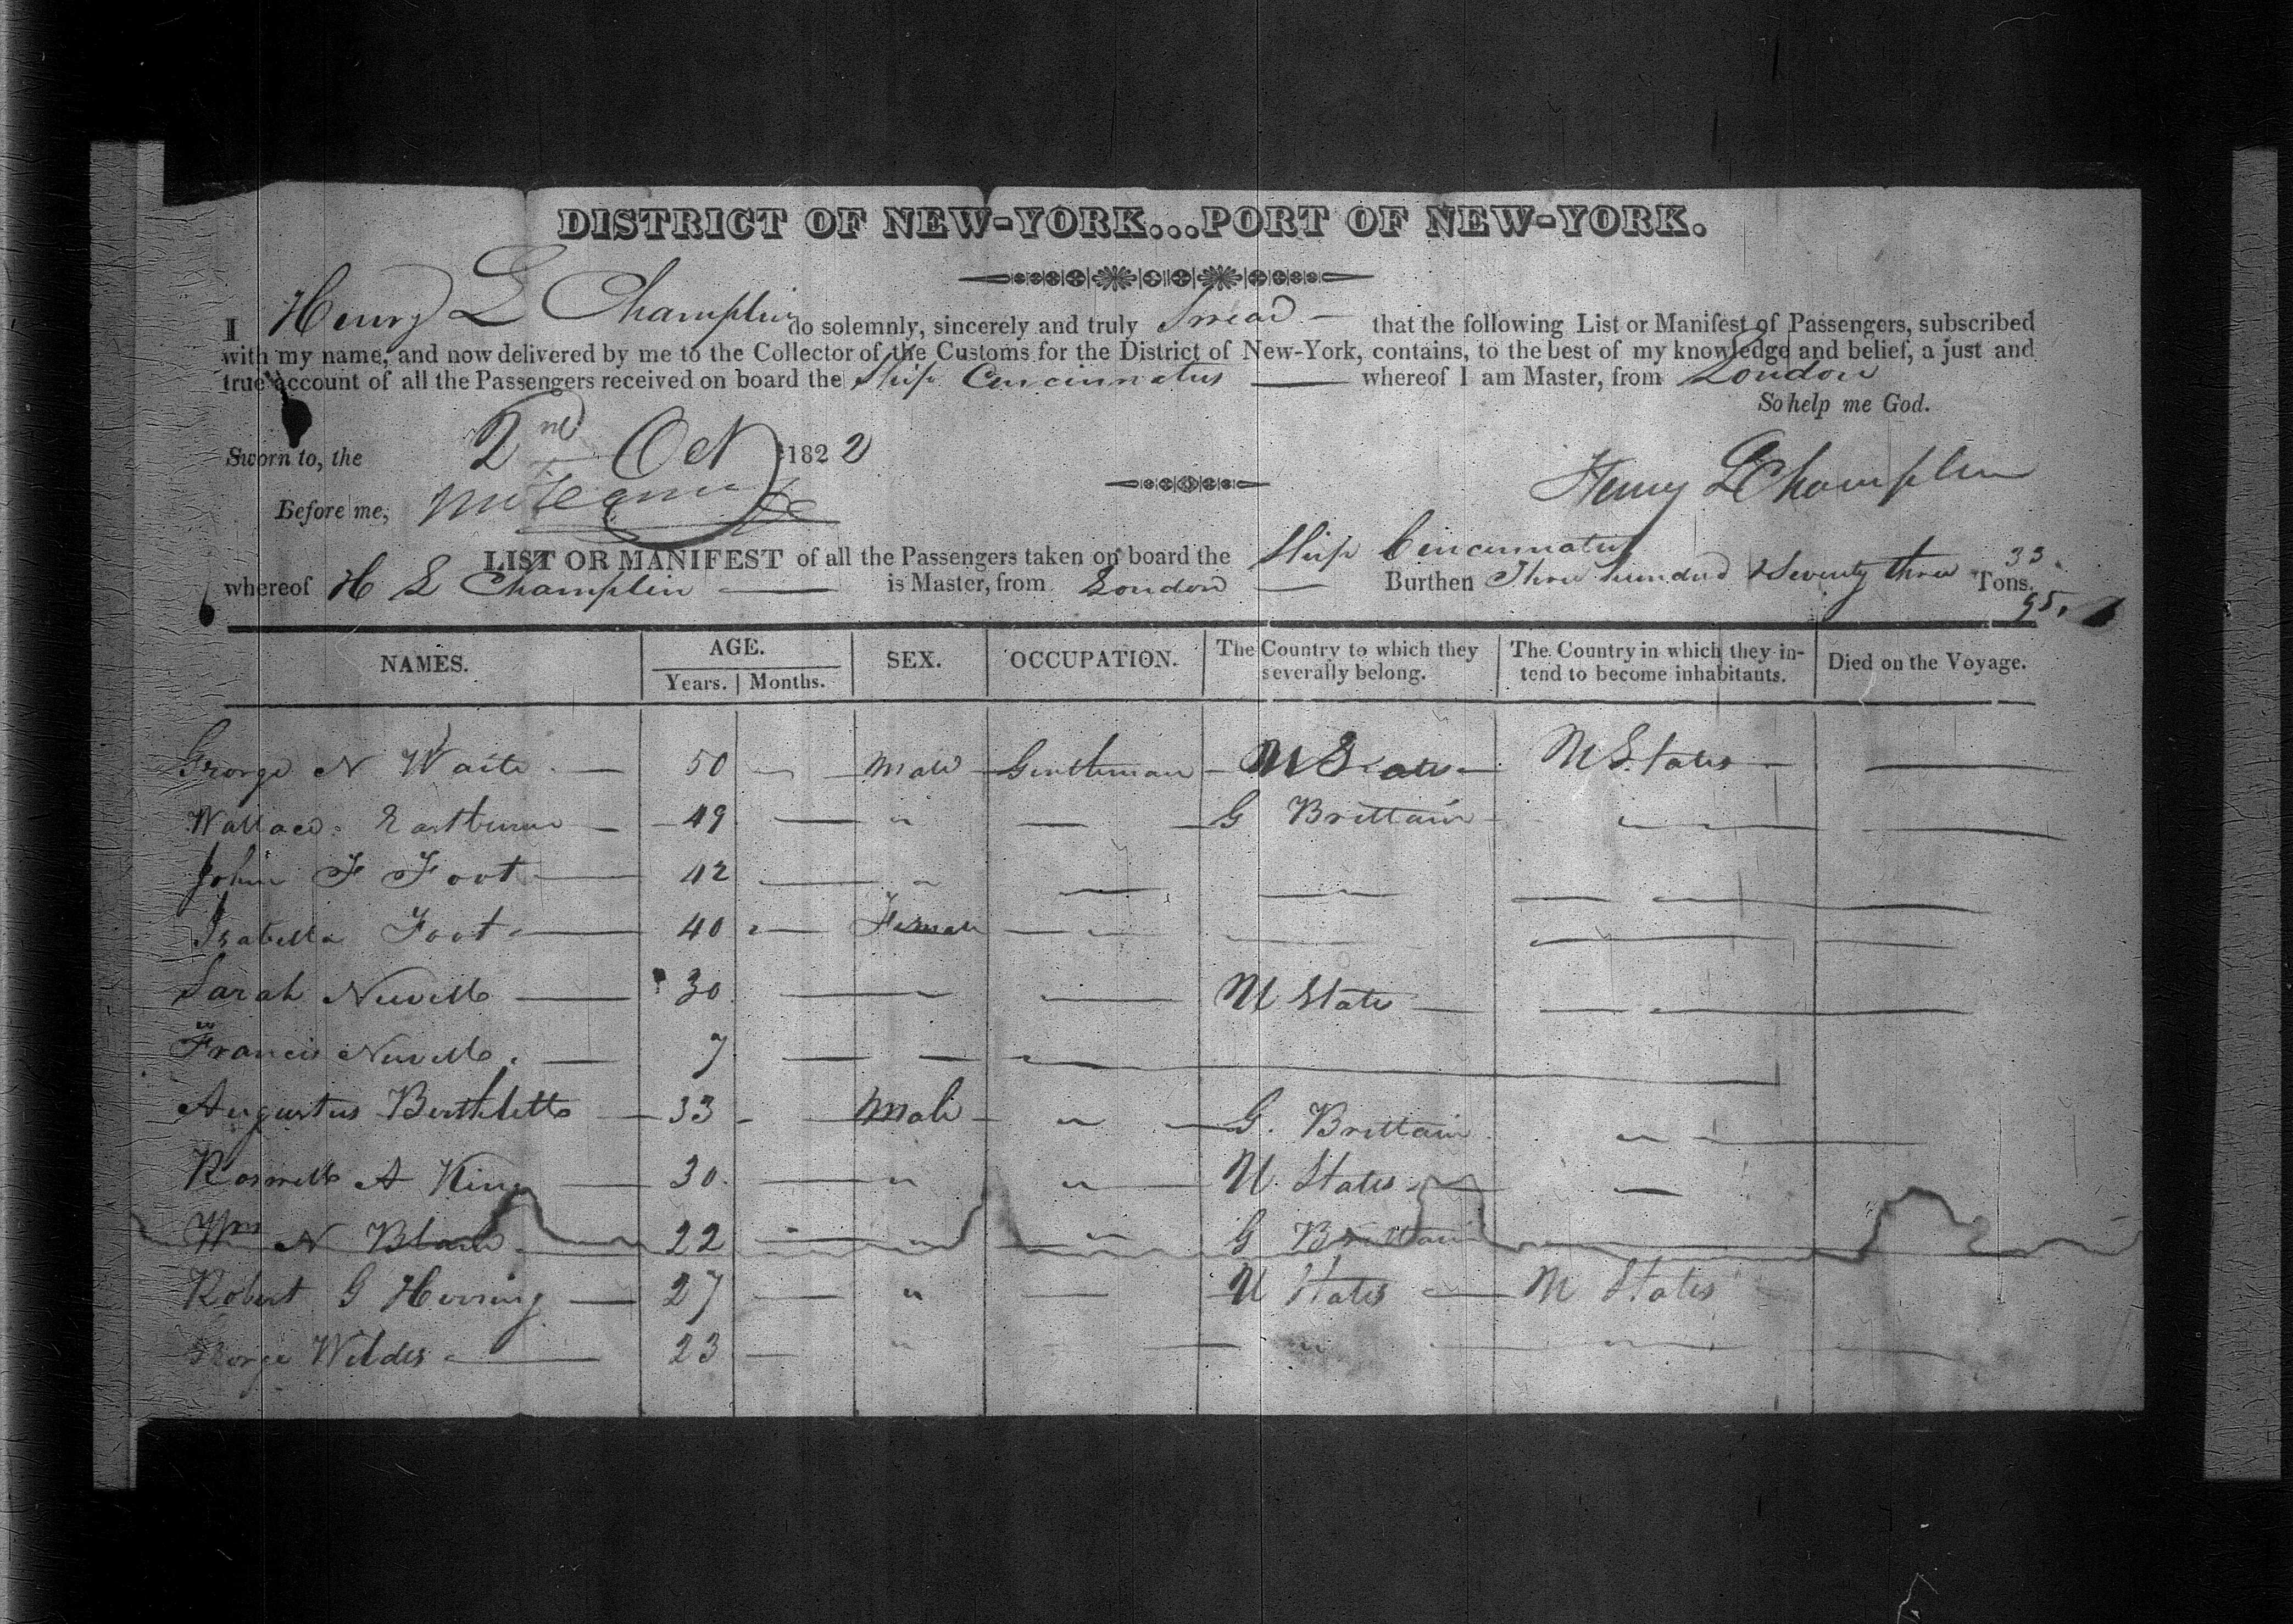 DISTRICT OF NEW-YORK...PORT OF NEW-YORK.
I Henry L Champlin do solemnly, sincerely and truly Swear that the following List or Manifest of Passengers, subscribed
with my name, and now delivered by me to the Collector of the Customs for the District of New-York, contains, to the best of my knowledge and belief, a just and
true account of all the Passengers received on board the Ship Cincinnatus whereof I am Master, from London
So help me God.
Sworn to, the 2nd Oct 1822
Henry L Champlin
Before me,
LIST OR MANIFEST of all the Passengers taken on board the Ship Cincinnatus
whereof H L Champlin is Master, from London Burthen Three hundred & Seventy three 33 Tons.
95.
NAMES. AGE. SEX. OCCUPATION. The Country to which they severally belong. The Country in which they intend to become inhabitants. Died on the Voyage.
Years. Months.
George N Waite 50 Male Gentleman U States U States
Wallace Eastburn 49 " G Brittain
John F Foot 42 "
Isabella Foot 40 Female
Sarah Newell 30 U State
Francis Newell 7
Augustus Berthlett 33 Male " G. Brittain "
Roswell A King 30 " " U. States
Wm N Blane 22 " " G Brittain
Robert G Herring 27 " U States U States
George Wildes 23 " "